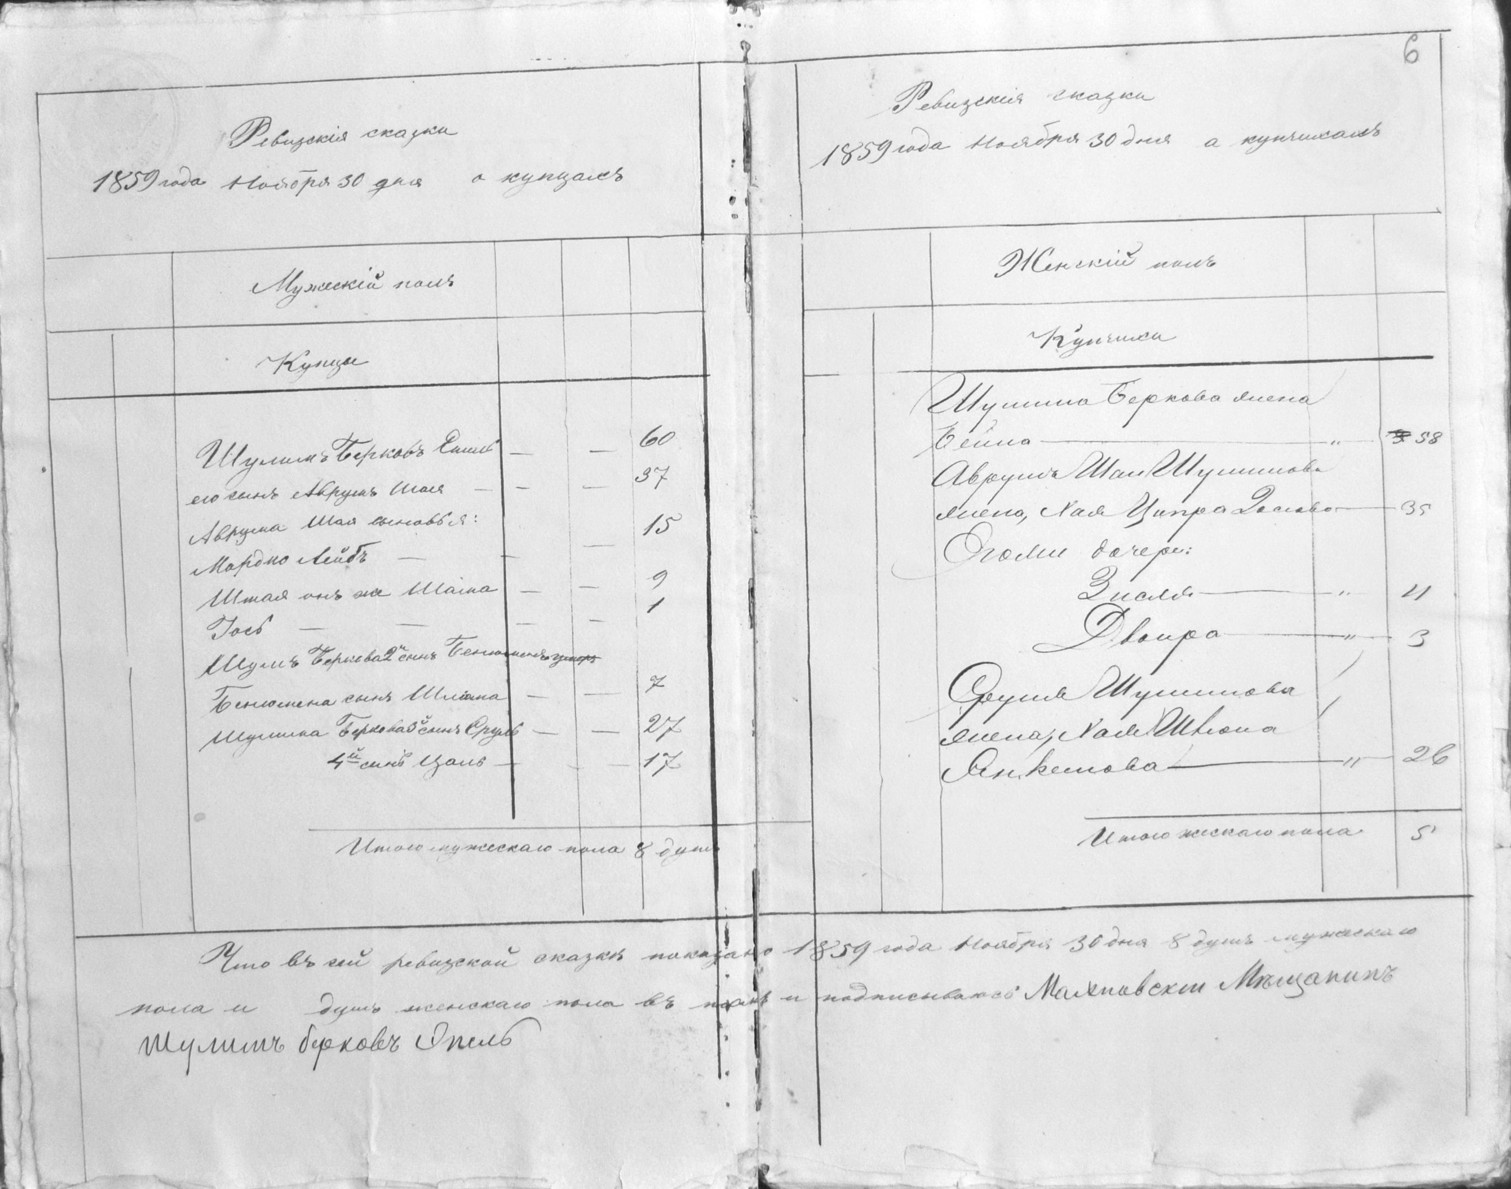 6
Ревизскія сказки
1859 года Ноября 30 дня о купцахъ
Мужескій полъ
Купцы
Шулимъ Берковъ 60
его сынъ Аврумъ Шая 37
Аврума Шая сыновья:
Мордко Лейбъ 15
Шмая онъ же Шаіма 9
Іось 1
Шулимъ Беркова 2й сынъ Бенюминъ умеръ
Бенюмена сынъ Шліома 7
Шулима Беркова 3й сынъ Сруль 27
4й сынъ Цаль 17
Итого мужескаго пола 8 душъ
Ревизскія сказки
1859 года Ноября 30 дня а купчихахъ
Женскій полъ
Купчихи
Шулима Беркова жена
Бейла " 58
Аврумъ Шаи Шулимова
жена, Хая Ципра 35
Огоми дочери:
Зисля " 11
Двойра " 3
Сруля Шулимова
жена, Хая Швіона
Янкелова " 26
Итого женскаго пола 5
Что въ сей ревизской сказкѣ показано 1859 года Ноября 30 дня 8 душъ мужескаго
пола и душъ женскаго пола въ томъ и подписываюсь Маляповскии Мѣщанинъ
Шулимъ берковъ Опель